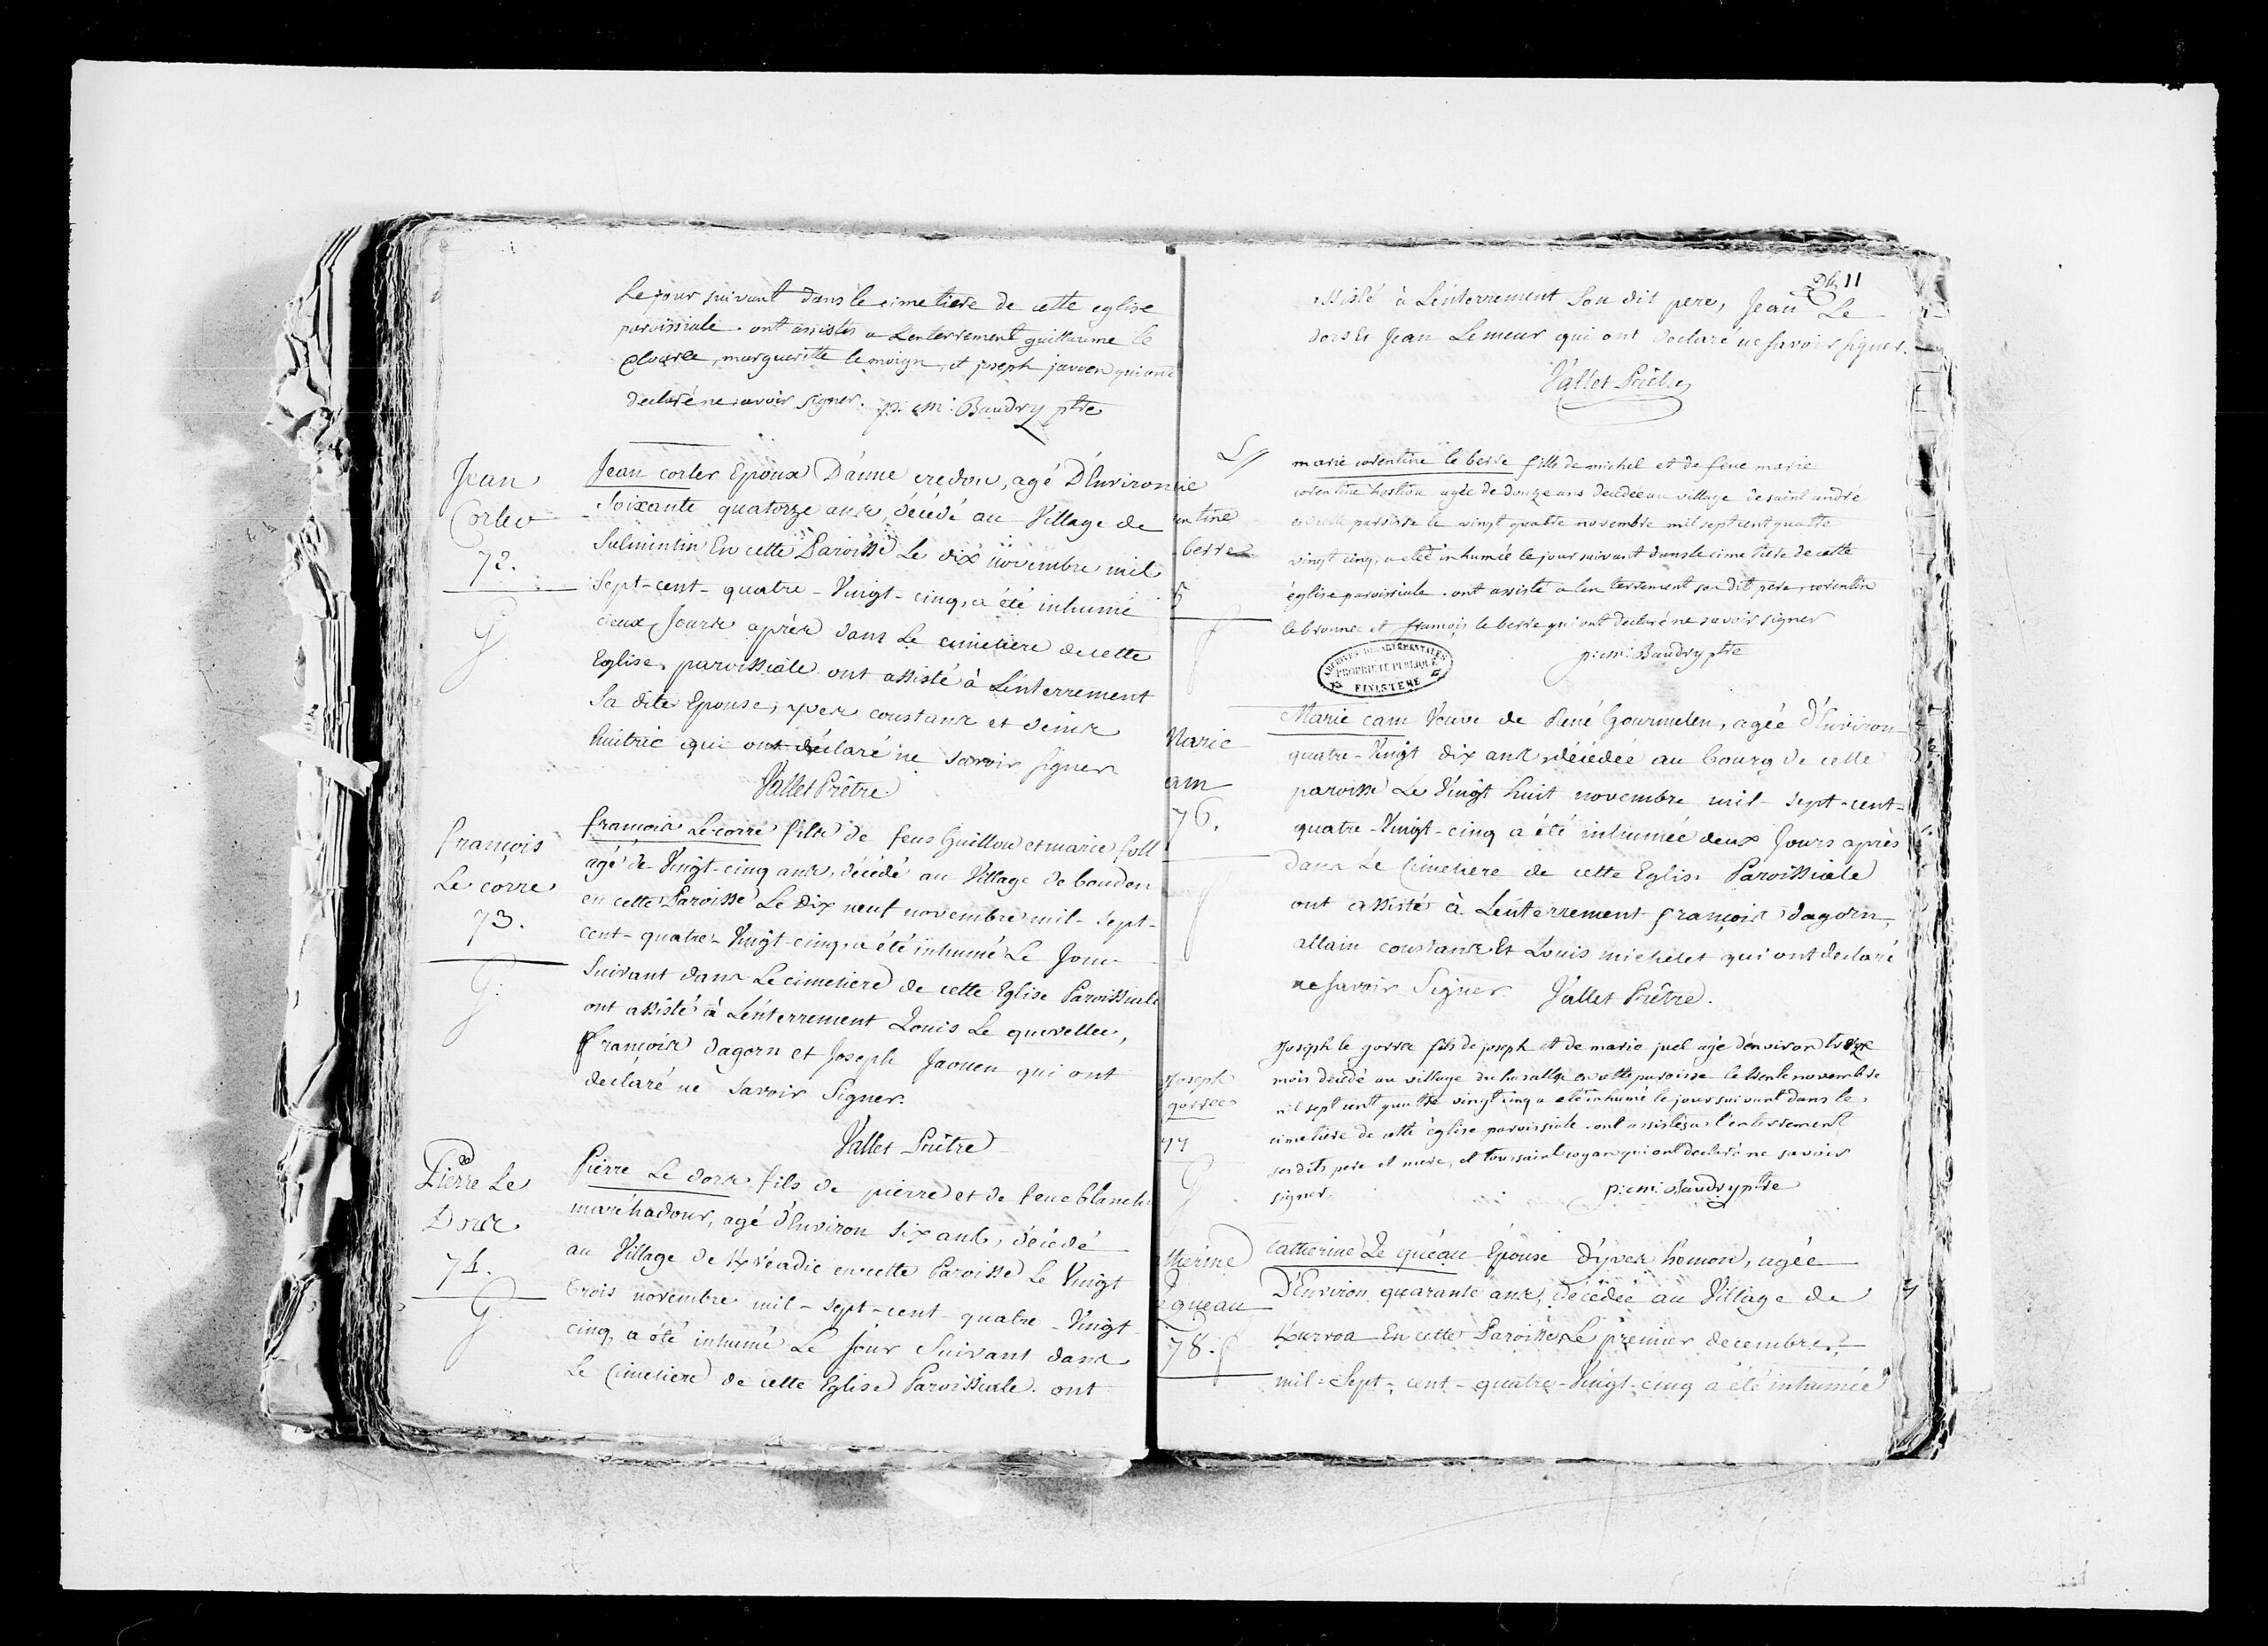 Le jour suivant dans le cimetiere de cette eglise
paroissiale. ont assistés a Lenterrement guillaume le
marguerite lemoign, et joseph jaouen qui ont
declaré ne savoir signer. p: m: Baudry ptre
Jean
Corler
72.
Jean corler Epoux D'anne credou, agé D'Environ
Soixante quatorze ans, décédé au Village de
Sulmintin En cette Paroisse Le dix novembre mil
Sept-cent-quatre-Vingt-cinq, a été inhumé
deux Jours après dans Le cimetiere de cette
Eglise paroissiale ont assisté à L'enterrement
Sa dite Epouse, yves constans et denis
huitric qui ont déclaré ne savoir signer
Vallet Prêtre
françois
Le corre
73.
G
françois Le corre fils de feus Guillou et marie foll
agé de Vingt-cinq ans, décédé au Village de boudou
en cette Paroisse Le Dix neuf novembre mil-sept-
cent-quatre-Vingt-cinq, a été inhumé Le Jour
Suivant dans Le cimetiere de cette Eglise Paroissiale
ont assisté à L'enterrement Louis Le quevellec,
françois dagorn et Joseph Jaouen qui ont
declaré ne savoir Signer.
Vallet Prêtre
Pierre Le
Dors
74.
G
Pierre Le dors fils de pierre et de feue blanche
marchadour, agé d'Environ six ans, décédé
au Village de en cette Paroisse Le Vingt
trois novembre mil-sept-cent-quatre-Vingt
cinq, a été inhumé Le jour Suivant dans
Le Cimetiere de cette Eglise Paroissiale. ont
11
assisté à L'enterrement Son dit pere, Jean Le
dors Et Jean Lemeur qui ont declaré ne Savoir signer.
Vallet Prêtre
ie
entine
berre
5
marie corentine le berre fille de michel et de feue marie
corentine hostiou agée de douze ans decedée au village de saint andré
en cette paroisse le vingt quatre novembre mil sept cent quatre
vingt cinq, a eté inhumée le jour suivant dans le cimetiere de cette
église paroissiale. ont assisté a l'enterrement son dit pere, corentin
le bronnec et françois le berre qui ont declaré ne savoir signer
p: m: Baudry ptre
ARCHIVES DEPARTEMENTALES
PROPRIETE PUBLIQUE
FINISTERE
Marie
am
76.
Marie cam Veuve de René Gourmelen, agée d'Environ
quatre-Vingt dix ans, décédée au bourg de cette
paroisse Le Vingt huit novembre mil-sept-cent-
quatre-Vingt-cinq a été inhumée deux Jours après
dans Le Cimetiere de cette Eglise Paroissiale
ont assisté à L'enterrement françois dagorn,
allain constans Et Louis michelet qui ont declaré
ne Savoir Signer Vallet Prêtre.
Joseph
gorrec
77
G
Joseph le gorrec fils de joseph et de marie juel agé d'environ treize
mois decedé au village du en cette paroisse le trente novembre
mil sept cent quatre vingt cinq a eté inhumé le jour suivant dans le
cimetiere de cette église paroissiale. ont assistés a l'enterrement
ses dits pere et mere, et toussaint cogan qui ont declaré ne savoir
signer. p: m: Baudry ptre
atherine
Le queau
78.
Catherine Le quéau Epouse d'yves homon, agée
D'Environ quarante ans, décédée au Village de
En cette Paroisse Le premier decembre
mil-Sept-cent-quatre-Vingt-cinq a été inhumée